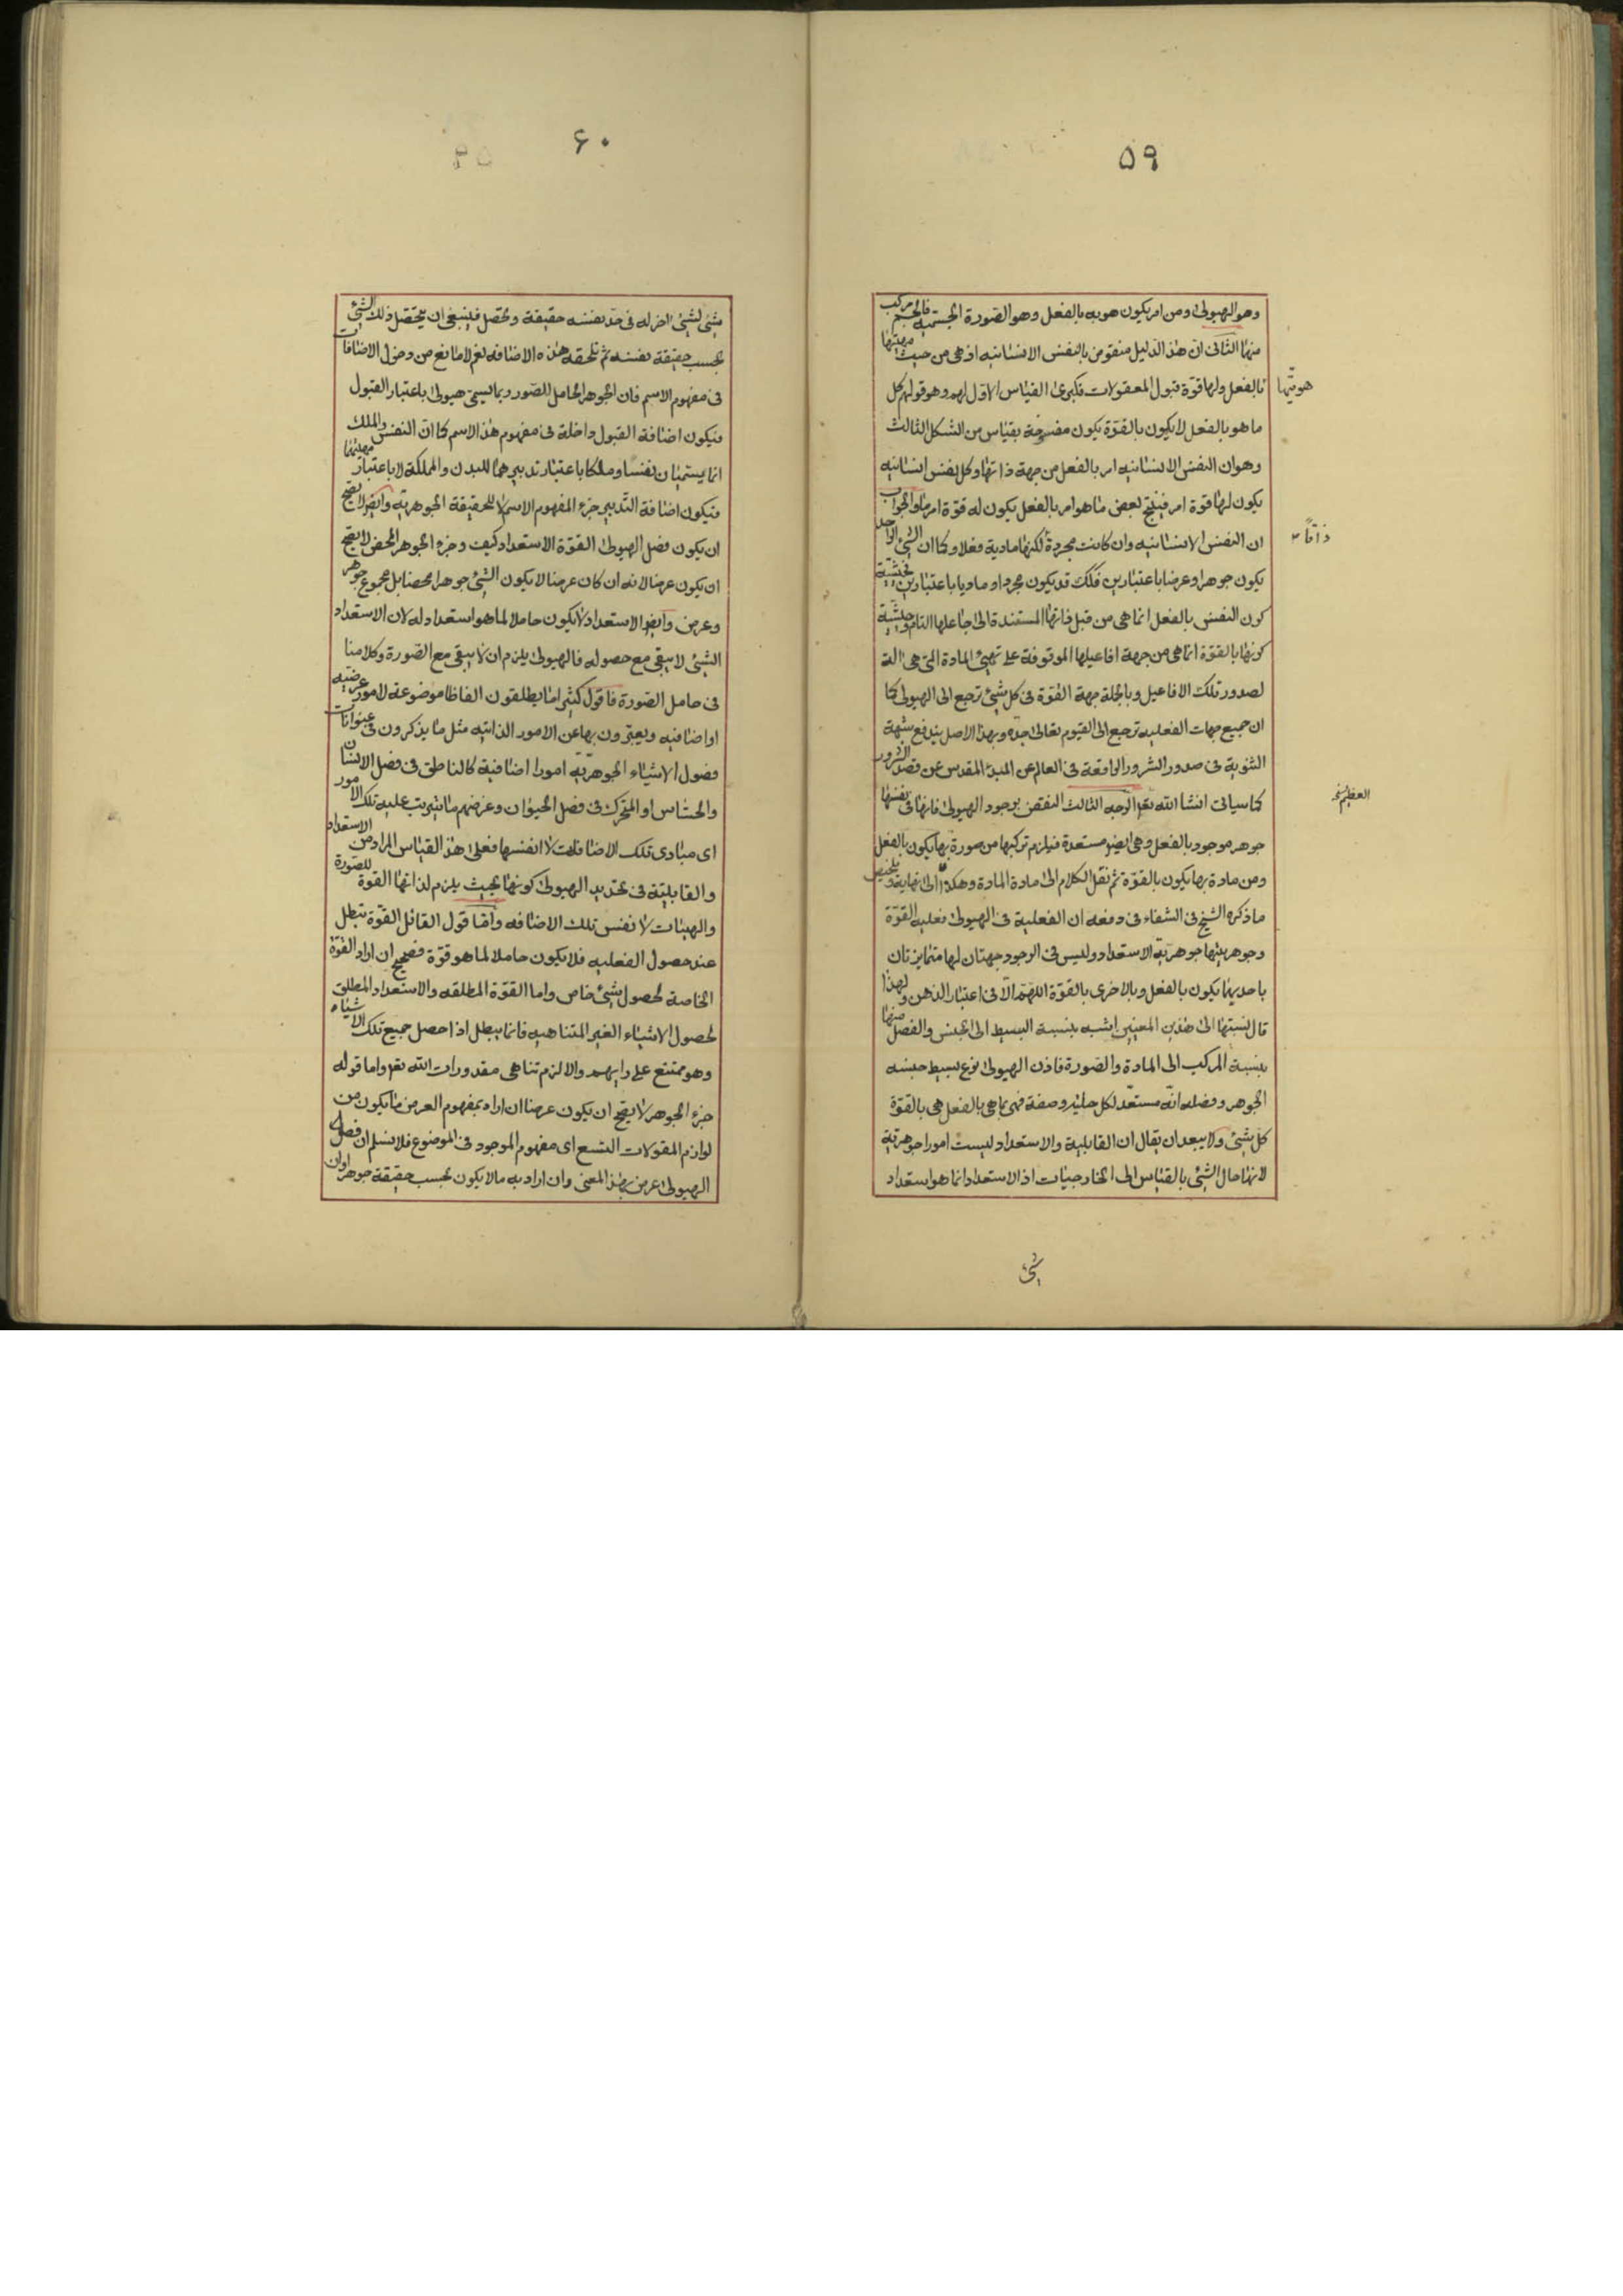 ٥٩
وهو الهيولى ومن امر يكون هو به بالفعل وهو الصورة الجسمية فالجسم مركب
منهما الثانى ان هذا الدليل منقوض بالنفس الانسانيه اذ هى من حيث مهيتها
بالفعل ولها قوة قبول المعقولات فكبرى القياس الاول لهم وهو قولهم كل
هويتها
ما هو بالفعل لا يكون بالقوة يكون مفسوخة بقياس من الشكل الثالث
وهو ان النفس الانسانيه امر بالفعل من جهة ذاتها وكل نفس انسانيه
يكون لها قوة امر فينتج بعض ما هو امر بالفعل يكون له قوة امر ما والجواب
ان النفس الانسانيه وان كانت مجردة لكنها مادية فعلا وكما ان الشئ الواحد
ذاتاً
يكون جوهرا وعرضا باعتبارين فكك قد يكون مجردا وماديا باعتبارين فحيثية
كون النفس بالفعل انما هى من قبل ذاتها المستندة الى جاعلها التام وحيثية
كونها بالقوة انما هى من جهة افاعيلها الموقوفة على تهيئ المادة التى هى الة
لصدور تلك الافاعيل وبالجملة جهة القوة فى كل شئ ترجع الى الهيولى كما
ان جميع جهات الفعليه ترجع الى القيوم تعالى جده وبهذا الاصل يندفع شبهة
الثنوية فى صدور الشرور الواقعة فى العالم عن المبدء المقدس عن قصد الشرور
كما سياتى انشا الله تعم الوجه الثالث النقض بوجود الهيولى فانها فى نفسها
العظيم
جوهر موجود بالفعل وهى ايضو مستعدة فيلزم تركبها من صورة بها يكون بالفعل
ومن مادة بها يكون بالقوة ثم نقل الكلام الى مادة المادة وهكذا الى نهاية وتلخيص
ما ذكره الشيخ فى الشفاء فى دفعه ان الفعلية فى الهيولى فعليه القوة
وجوهريتها جوهرية الاستعداد وليس فى الوجود جهتان لها متمايزتان
باحديهما يكون بالفعل وبالاخرى بالقوة اللهم الا فى اعتبار الذهن ولهذا
قال نسبتها الى هذين المعنيين اشبه بنسبة البسيط الى الجنس والفصل منها
بنسبة المركب الى المادة والصورة فاذن الهيولى نوع بسيط جنسه
الجوهر وفصله انه مستعد لكل حلية وصفة فهى بما هى بالفعل هى بالقوة
كل شئ ولا يبعد ان يقال ان القابلية والاستعداد ليست امورا جوهرية
لانها حال الشئ بالقياس الى الخارجيات اذ الاستعداد انما هو استعداد
٦٠
شئ لشئ اخر له فى حد نفسه حقيقة وتحصل فينبغى ان يتحصل ذلك الشئ
بحسب حقيقة نفسه ثم تلحقه هذه الاضافه نعم لا مانع من دخول الاضافات
فى مفهوم الاسم فان الجوهر الحامل للصور ربما يسمى هيولى باعتبار القبول
فيكون اضافة القبول داخلة فى مفهوم هذا الاسم كما ان النفس والملك
انما يسميان نفسا وملكا باعتبار تدبيرهما للبدن والمملكة لا باعتبار مهيتهما
فيكون اضافة التدبير جزء المفهوم الاسم لا للحقيقة الجوهرية وايضو لا يصح
ان يكون فصل الهيولى القوة الاستعداد كيف وجزء الجوهر المحض لا يصح
ان يكون عرضا لانه ان كان عرضا لا يكون الشئ جوهرا محضا بل مجموع جوهر
وعرض وايضو الاستعداد لا يكون حاملا لما هو استعداد له لان الاستعداد
الشئ لا يبقى مع حصوله فالهيولى يلزم ان لا يبقى مع الصورة وكلامنا
فى حامل الصورة فاقول كثيرا ما يطلقون الفاظا موضوعة لامور عرضيه
او اضافيه ويعبرون بها عن الامور الذاتيه مثل ما يذكرون فى عنوانات
فصول الاشياء الجوهرية امورا اضافية كالناطق فى فصل الانسان
والحساس او المتحرك فى فصل الحيوان وغرضهم ما يترتب عليه تلك الامور
اى مبادى تلك الاضافات لا انفسها فعلى هذا القياس المراد من الاستعداد
والقابلية فى تحديد الهيولى كونها بحيث يلزم لذاتها القوة للصورة
والهيئات لا نفس تلك الاضافه واما قول القائل القوة تبطل
عند حصول الفعليه فلا يكون حاملا لما هو قوة فصحيح ان اراد القوة
الخاصة لحصول شئ خاص واما القوة المطلقه والاستعداد المطلق
لحصول الاشياء الغير المتناهيه فانما يبطل اذا حصل جميع تلك الاشياء
وهو ممتنع على رايهم والا لزم تناهى مقدورات الله تعم واما قوله
جزء الجوهر لا يصح ان يكون عرضا ان اراد بمفهوم العرض ما يكون من
لوازم المقولات التسع اى مفهوم الموجود فى الموضوع فلا نسلم ان فصل
الهيولى عرض بهذا المعنى وان اراد به ما لا يكون بحسب حقيقة جوهرا وان